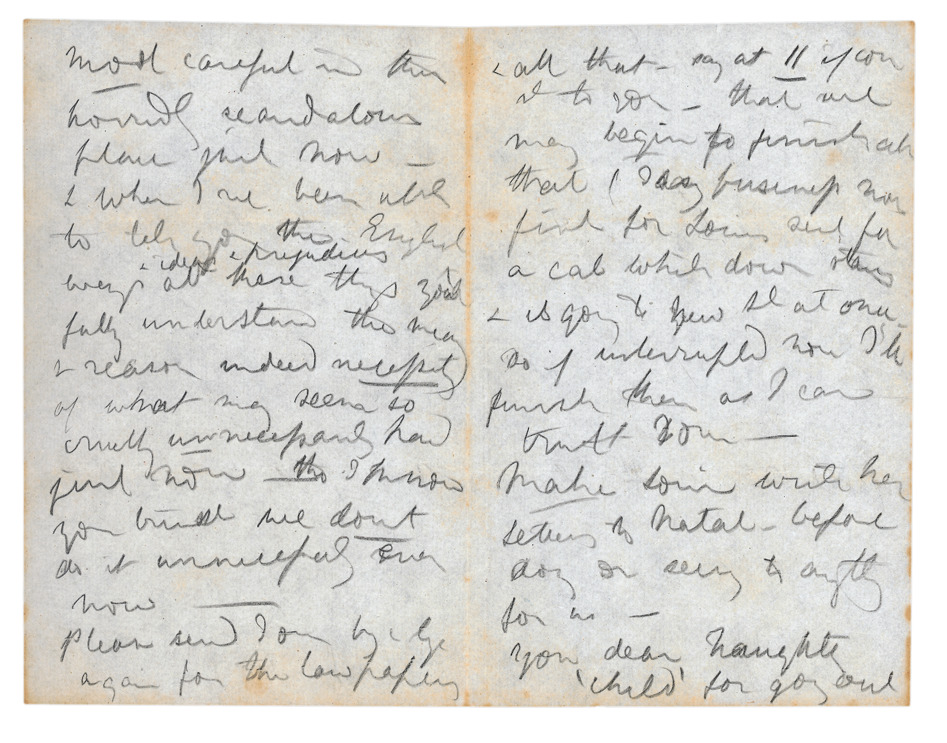 most careful in this
horridly scandalous
place just now —
& when I've been able
to tell you the English
& ideas & prejudices
ways abt these things you'll
fully understand the
& reason indeed necessity
of what may seem so
cruelly unnecessarily hard
just now tho I know
you trust me don't
do it unnecessarily ever
now —
Please send Tom by & bye
again for the law papers
& all that — say at 11 if
to you — that we
may begin to finish
that business now
first for Louis sent for
a cab while down stairs
& is going to at once
so if interrupted now I'll
finish them as I can
trust Tom —
Make write her
letters to Natal — before
doing or seeing to anything
for us —
you dear naughty
'child' for going out